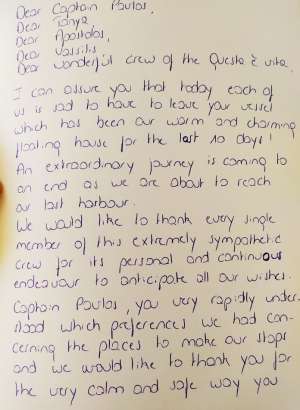 Dear Captain Paulos,
Dear Tanya
Dear Apostolos,
Dear Vassilis
Dear wonderful crew of the Questa è vita.
I can assure you that today each of
us is sad to have to leave your vessel
which has been our warm and charming
floating house for the last 10 days!
An extraordinary journey is coming to
an end as we are about to reach
our last harbour.
We would like to thank every single
member of this extremely sympathetic
crew for its personal and continuous
endeavour to anticipate all our wishes.
Captain Paulos, you very rapidly under-
stood which preferences we had con-
cerning the places to make our stops
and we would like to thank you for
the very calm and safe way you